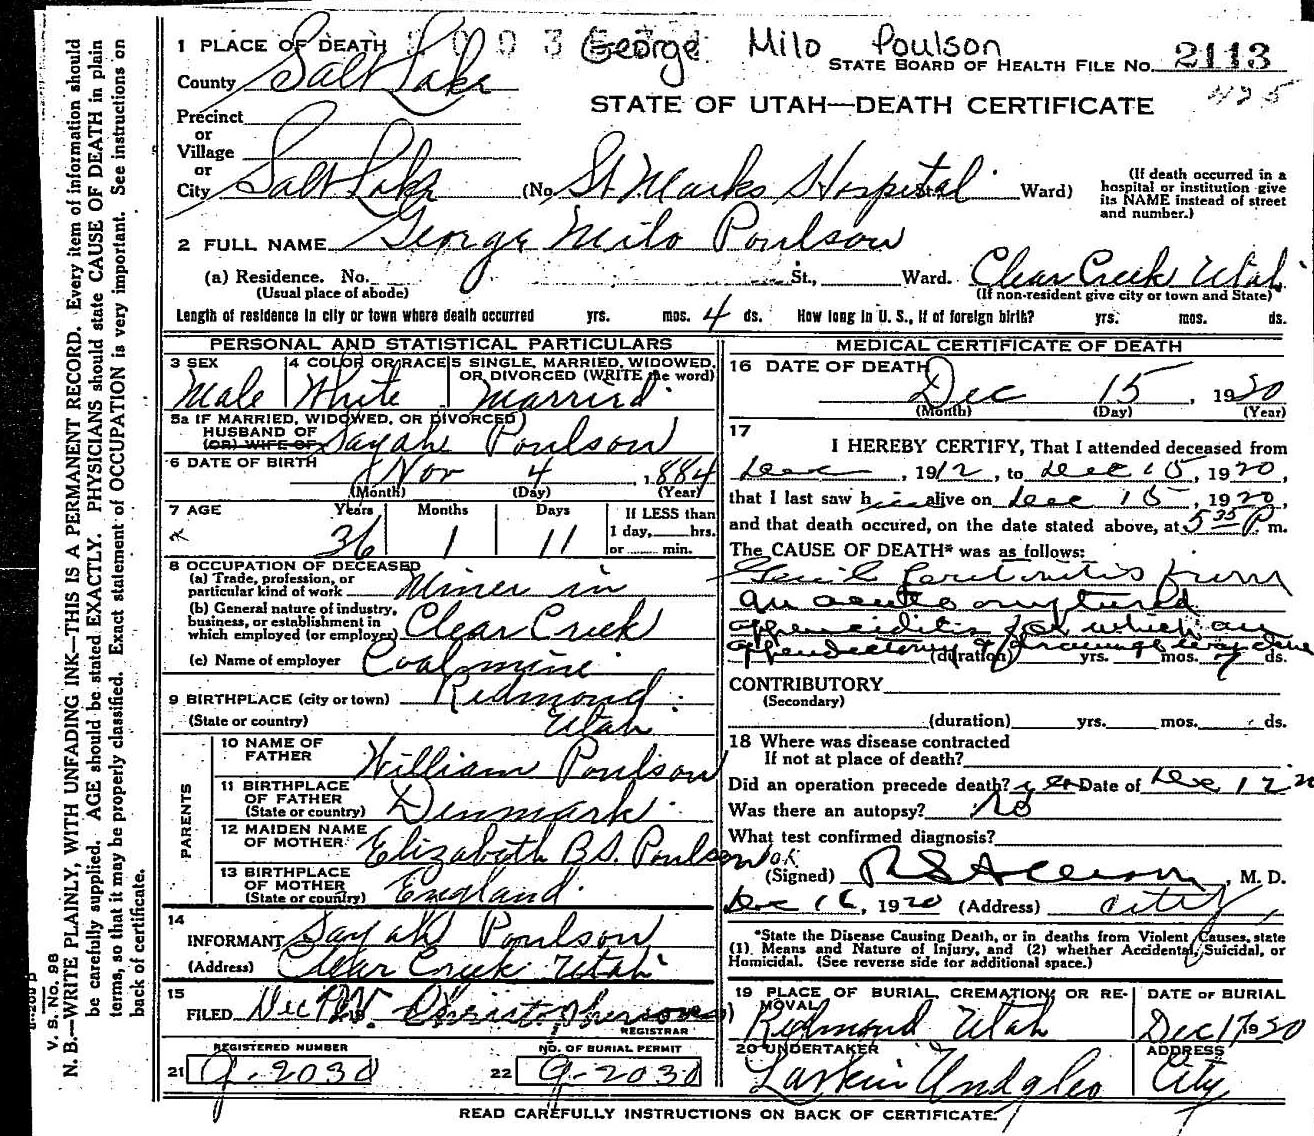 George Milo Poulson
1 PLACE OF DEATH
STATE BOARD OF HEALTH FILE NO. 2113
County Salt Lake
425
STATE OF UTAH—DEATH CERTIFICATE
Precinct
or
Village
or
City Salt Lake (No. St Marks Hospital Ward)
(If death occurred in a hospital or institution give its NAME instead of street and number.)
2 FULL NAME George Milo Poulson
(a) Residence. No. St., Ward. Clear Creek Utah
(Usual place of abode) (If non-resident give city or town and State)
Length of residence in city or town where death occurred yrs. mos. 4 ds. How long in U. S., if of foreign birth? yrs. mos. ds.
PERSONAL AND STATISTICAL PARTICULARS
3 SEX Male
4 COLOR OR RACE White
5 SINGLE, MARRIED, WIDOWED, OR DIVORCED (WRITE the word) Married
5a IF MARRIED, WIDOWED, OR DIVORCED
HUSBAND OF
(OR) WIFE OF Sayah Poulson
6 DATE OF BIRTH Nov 4, 1884
(Month) (Day) (Year)
7 AGE Years Months Days If LESS than
36 1 11 1 day, hrs.
or min.
8 OCCUPATION OF DECEASED
(a) Trade, profession, or particular kind of work Miner in
(b) General nature of industry, business, or establishment in which employed (or employer) Clear Creek
(c) Name of employer Coalmine
9 BIRTHPLACE (city or town) Redmond
(State or country) Utah
PARENTS
10 NAME OF FATHER William Poulson
11 BIRTHPLACE OF FATHER (State or country) Denmark
12 MAIDEN NAME OF MOTHER Elizabeth B.S. Poulson
13 BIRTHPLACE OF MOTHER (State or country) England
14
INFORMANT Sayah Poulson
(Address) Clear Creek Utah
15
FILED Dec
REGISTRAR
REGISTERED NUMBER NO. OF BURIAL PERMIT
21 G-2030 22 G-2030
MEDICAL CERTIFICATE OF DEATH
16 DATE OF DEATH Dec 15, 1920
(Month) (Day) (Year)
17
I HEREBY CERTIFY, That I attended deceased from
Dec, 1912, to Dec 15, 1920,
that I last saw him alive on Dec 15, 1920,
and that death occured, on the date stated above, at 5 35 P. m.
The CAUSE OF DEATH* was as follows:
peritonitis from
an acute ruptured
appendicitis for which an
appendectomy & drainage was done
(duration) yrs. mos. 7 ds.
CONTRIBUTORY
(Secondary)
(duration) yrs. mos. ds.
18 Where was disease contracted
If not at place of death?
Did an operation precede death? yes Date of Dec 12 20
Was there an autopsy? No
What test confirmed diagnosis?
O.K.
(Signed) , M. D.
Dec 16, 1920 (Address) City
*State the Disease Causing Death, or in deaths from Violent Causes, state (1) Means and Nature of Injury, and (2) whether Accidental, Suicidal, or Homicidal. (See reverse side for additional space.)
19 PLACE OF BURIAL, CREMATION, OR REMOVAL Redmond Utah
DATE OF BURIAL Dec 17 1920
20 UNDERTAKER Larkin Undg Co
ADDRESS City
READ CAREFULLY INSTRUCTIONS ON BACK OF CERTIFICATE.
V. S. No. 98
N. B.—WRITE PLAINLY, WITH UNFADING INK—THIS IS A PERMANENT RECORD. Every item of information should
be carefully supplied. AGE should be stated EXACTLY. PHYSICIANS should state CAUSE OF DEATH in plain
terms, so that it may be properly classified. Exact statement of OCCUPATION is very important. See instructions on
back of certificate.